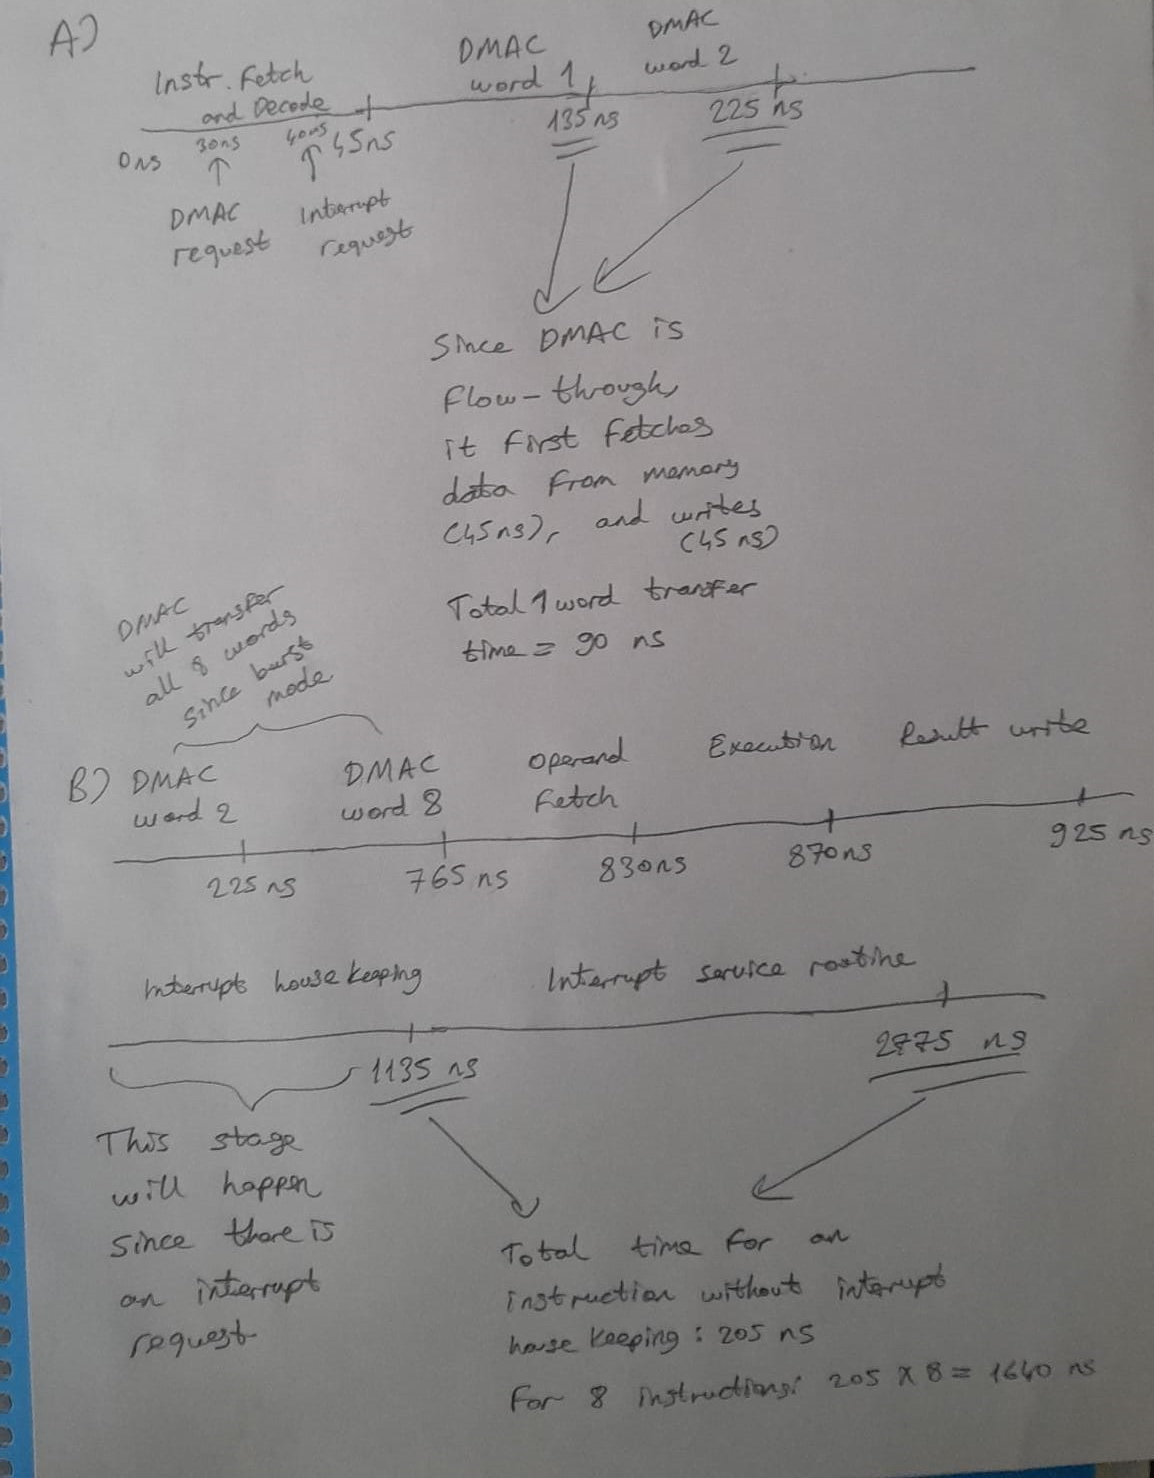 A)
Instr. Fetch
and Decode
DMAC
word 1
DMAC
word 2
0ns
30ns
40ns
45ns
135 ns
225 ns
DMAC
request
Interrupt
request
Since DMAC is
flow-through,
it first fetches
data from memory
(45ns), and writes
(45 ns)
Total 1 word transfer
time = 90 ns
DMAC
will transfer
all 8 words
since burst
mode
B)
DMAC
word 2
DMAC
word 8
Operand
Fetch
Execution
Result write
225 ns
765 ns
830ns
870ns
925 ns
Interrupt housekeeping
Interrupt service routine
1135 ns
2775 ns
This stage
will happen
since there is
an interrupt
request
Total time for an
instruction without interrupt
house keeping : 205 ns
For 8 instructions: 205 X 8 = 1640 ns